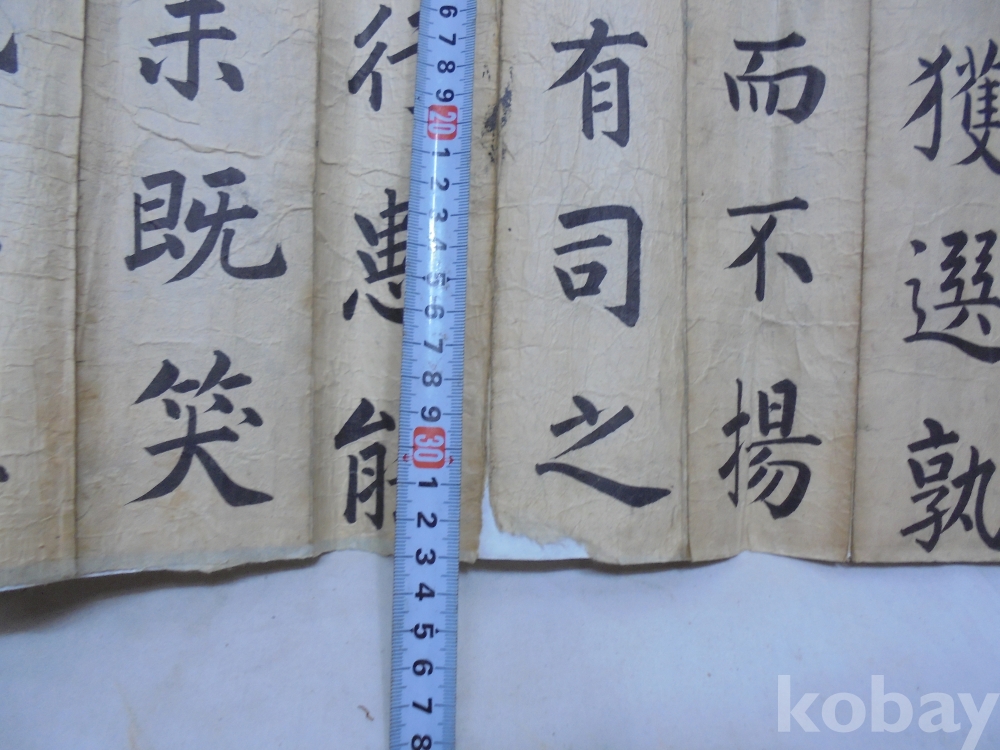 獲選孰
而不揚
有司之
行患能
未既笑
6 7 8 9 20 1 2 3 4 5 6 7 8 9 30 1 2 3 4 5 6 7 8
kobay